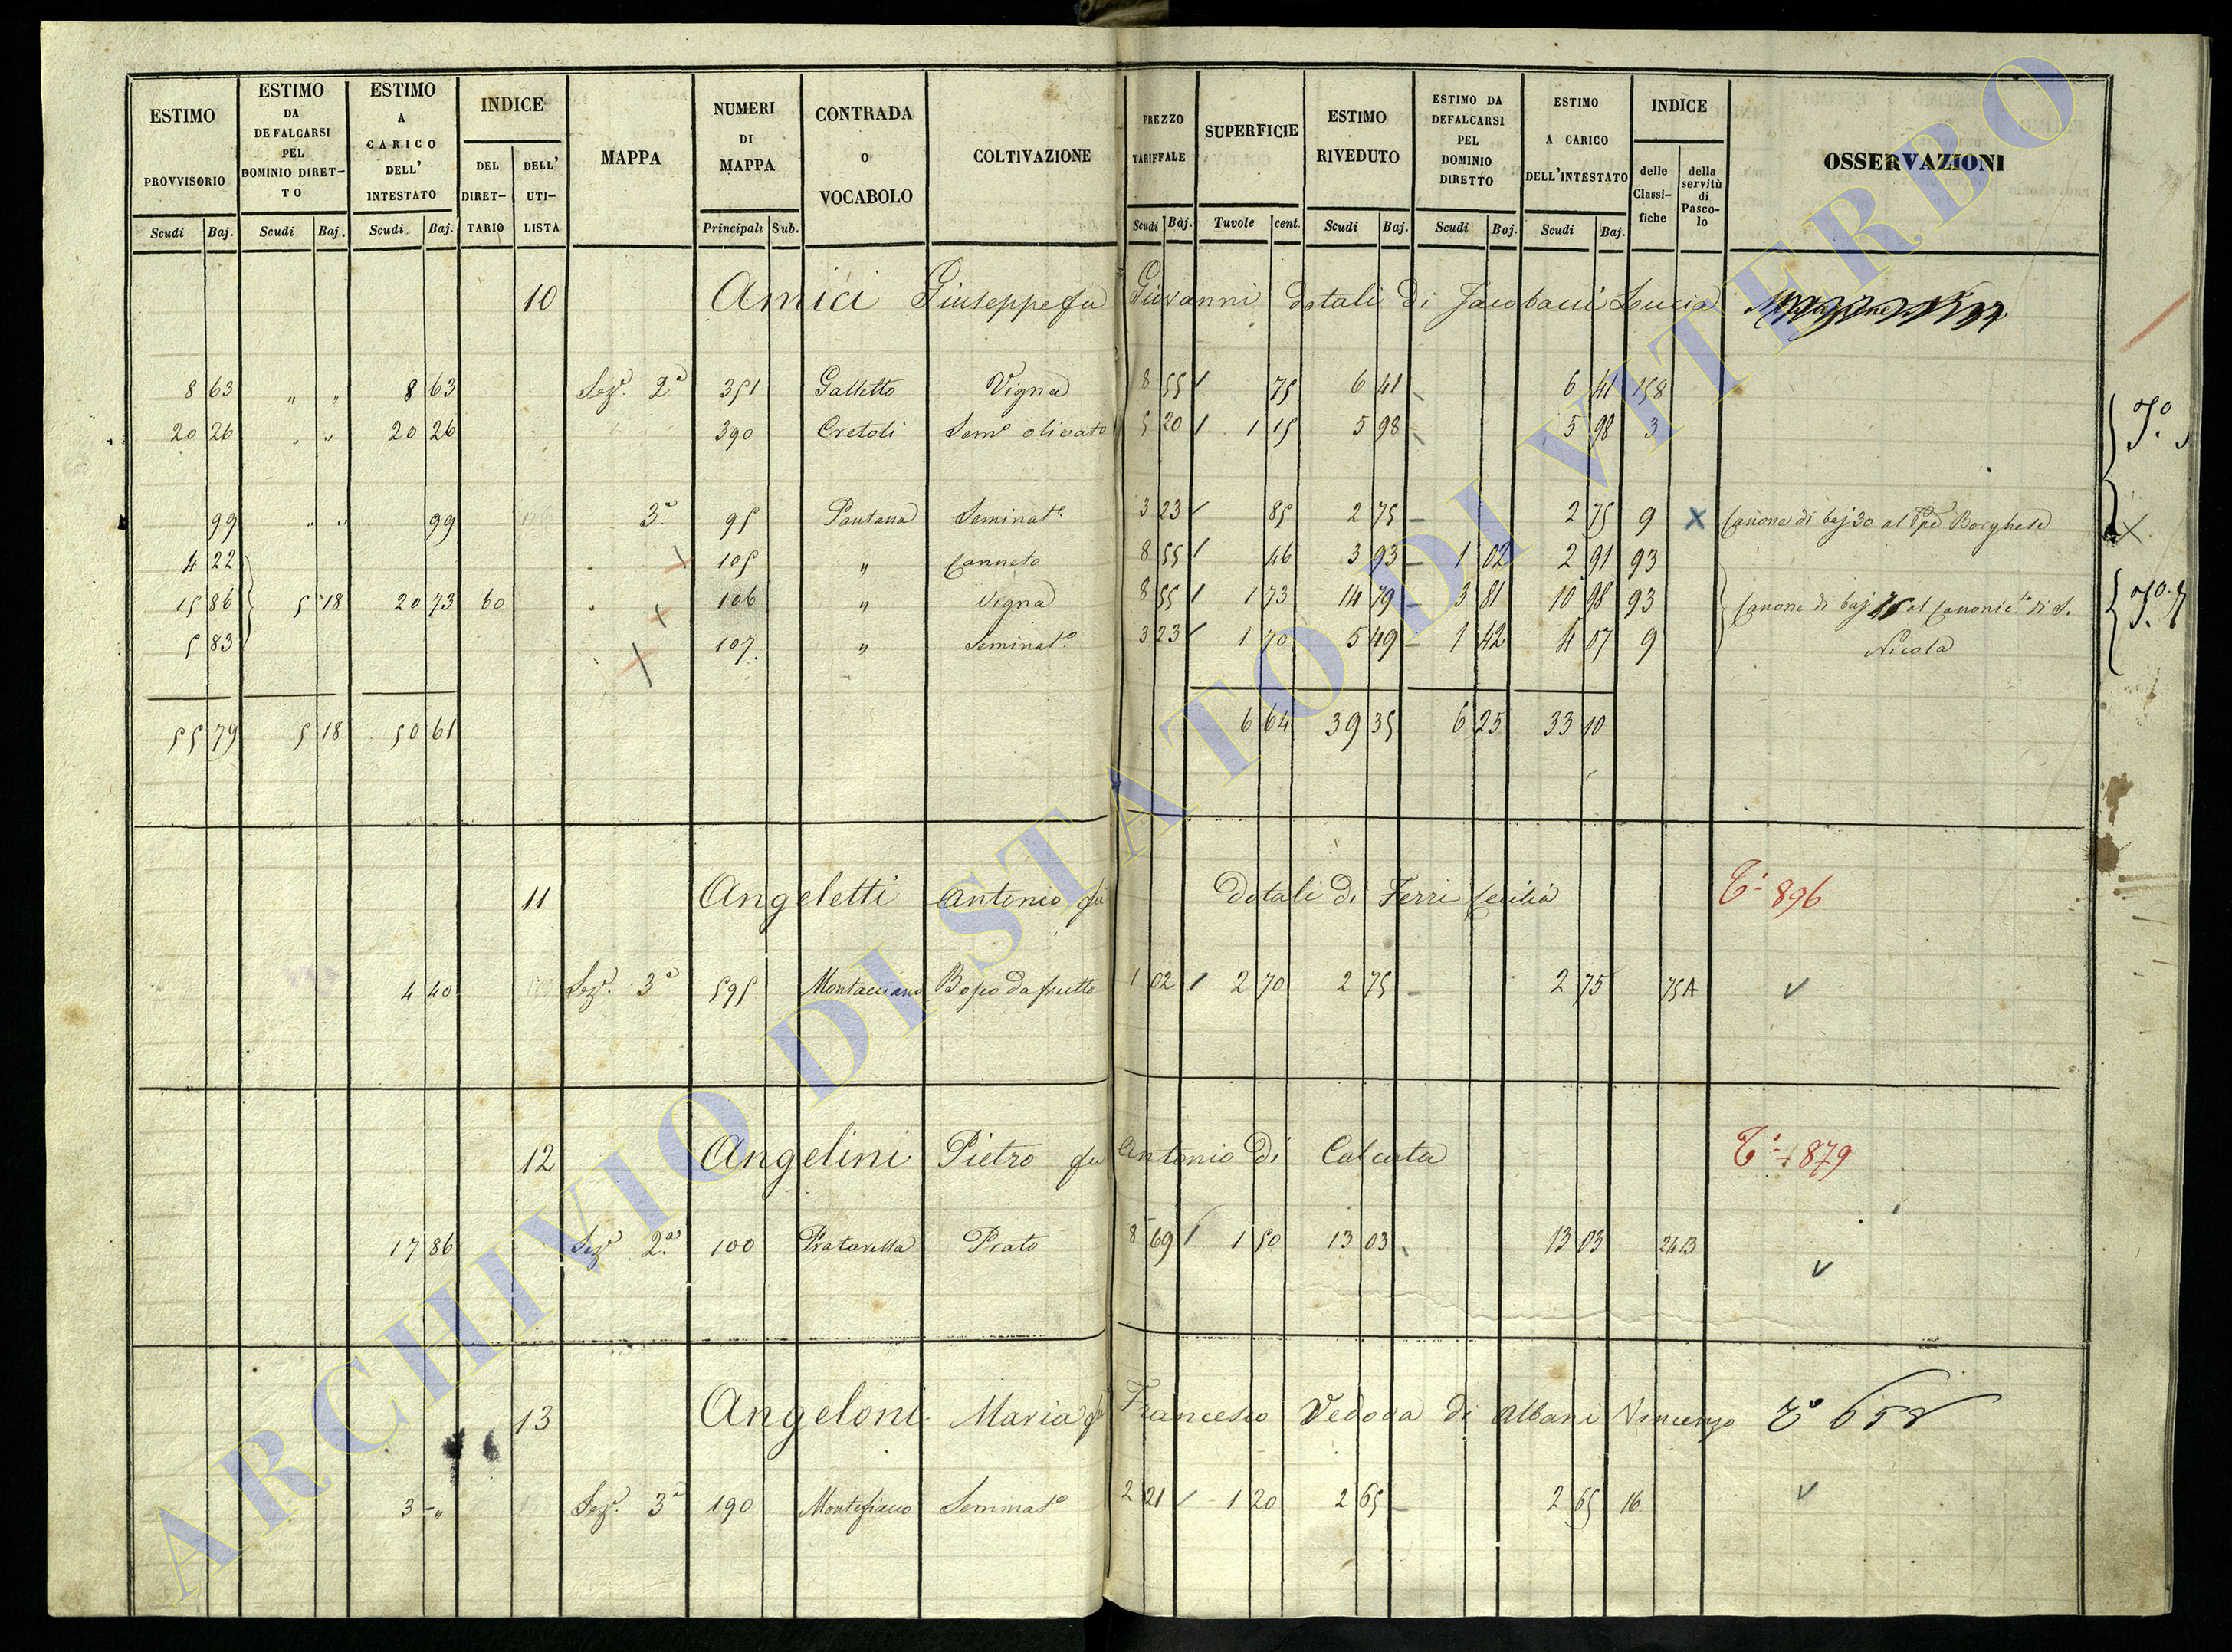 ESTIMO PROVVISORIO Scudi Baj.
ESTIMO DA DEFALCARSI PEL DOMINIO DIRET-TO Scudi Baj.
ESTIMO A CARICO DELL' INTESTATO Scudi Baj.
INDICE DEL DIRET-TARIO DELL' UTI-LISTA
MAPPA
NUMERI DI MAPPA Principali Sub.
CONTRADA O VOCABOLO
COLTIVAZIONE
PREZZO TARIFFALE Scudi Baj.
SUPERFICIE Tavole cent.
ESTIMO RIVEDUTO Scudi Baj.
ESTIMO DA DEFALCARSI PEL DOMINIO DIRETTO Scudi Baj.
ESTIMO A CARICO DELL'INTESTATO Scudi Baj.
INDICE delle Classi-fiche della servitù di Pasco-lo
OSSERVAZIONI
10 Amici Giuseppe fu Giovanni dotali di Jacobacci Lucia
8 63 " " 8 63 Sez.e 2a 351 Galletto Vigna 8 55 75 6 41 6 41 158
20 26 " " 20 26 390 Cretoli Sem.o olivato 5 20 1 15 5 98 5 98 3
99 " " 99 3a 95 Pantana Seminat.o 3 23 85 2 75 2 75 9 x Canone di baj 30 al Ppe Borghese x
4 22 x 105 " Canneto 8 55 46 3 93 1 02 2 91 93
15 86 5 18 20 73 60 x 106 " Vigna 8 55 1 73 14 79 3 81 10 98 93 Canone di baj 75 al Canonic.to di S.
5 83 x 107 " Seminat.o 3 23 1 70 5 49 1 42 4 07 9 Nicola
55 79 5 18 50 61 6 64 39 35 6 25 33 10
11 Angeletti Antonio fu dotali di Ferri Cecilia T.o 896
4 40 Sez.e 3a 595 Montacciano Bosco da frutto 1 02 2 70 2 75 2 75 75A
12 Angelini Pietro fu Antonio di Calcata T.o 879
17 86 Sez.e 2a 100 Pratarella Prato 8 69 1 50 13 03 13 03 2413
13 Angeloni Maria fu Francesco Vedova di Albani Vincenzo T.o 658
3 " Sez.e 3a 190 Montefiacco Seminat.o 2 21 1 20 2 65 2 65 16
ARCHIVIO DI STATO DI VITERBO